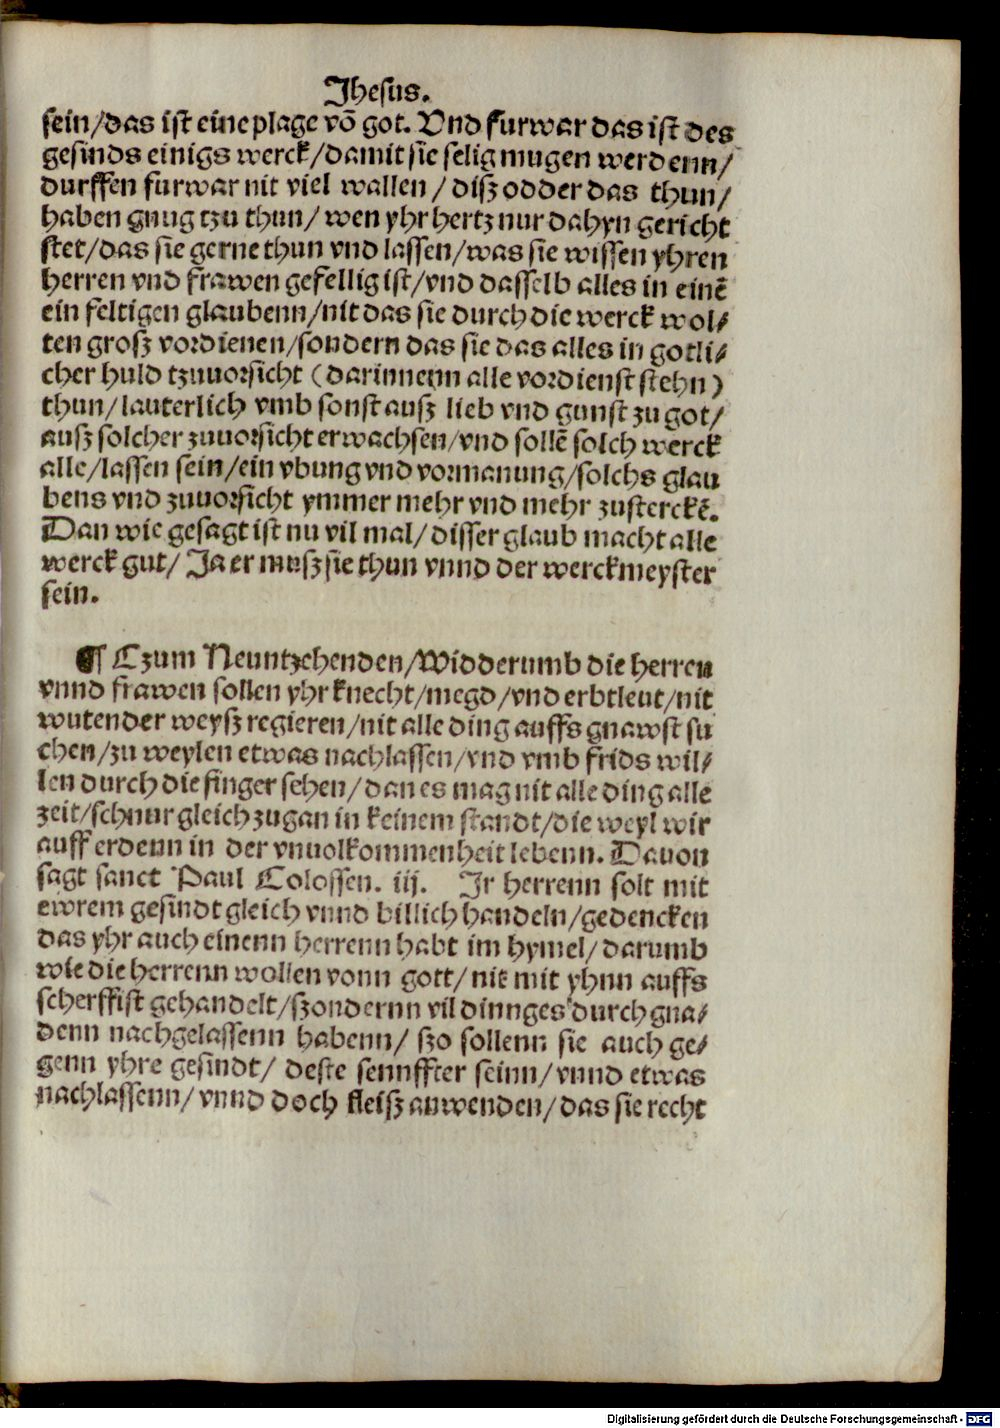 Jhesus.
sein/das ist eine plage võ got. Vnd furwar das ist des
gesinds einigs werck/damit sie selig mugen werdenn/
durffen furwar nit viel wallen/ disz odder das thun/
haben gnug tzu thun/ wen yhr hertz nur dahyn gericht
stet/das sie gerne thun vnd lassen/was sie wissen yhren
herren vnd frawen gefellig ist/vnd dasselb alles in einẽ
ein feltigen glaubenn/nit das sie durch die werck wol⸗
ten grosz vordienen/sondern das sie das alles in gotli⸗
cher huld tzuuorsicht (darinnenn alle vordienst stehn)
thun/lauterlich vmb sonst ausz lieb vnd gunst zu got/
ausz solcher zuuorsicht erwachsen/vnd sollẽ solch werck
alle/lassen sein/ein vbung vnd vormanung/solchs glau
bens vnd zuuorsicht ymmer mehr vnd mehr zusterckẽ.
Dan wie gesagt ist nu vil mal/ disser glaub macht alle
werck gut/ Ja er musz sie thun vnnd der werckmeyster
sein.
¶ Czum Neuntzehenden/Widderumb die herren
vnnd frawen sollen yhr knecht/megd/vnd erbtleut/nit
wutender weysz regieren/nit alle ding auffs gnawst su
chen/zu weylen etwas nachlassen/vnd vmb frids wil⸗
len durch die finger sehen/dan es mag nit alle ding alle
zeit/schnur gleich zugan in keinem standt/die weyl wir
auff erdenn in der vnuolkommenheit lebenn. Dauon
sagt sanct Paul Colossen. iij. Jr herrenn solt mit
ewrem gesindt gleich vnnd billich handeln/gedencken
das yhr auch einenn herrenn habt im hymel/darumb
wie die herrenn wollen vonn gott/nit mit yhnn auffs
scherffist gehandelt/szondernn vil dinnges durch gna⸗
denn nachgelassenn habenn/ szo sollenn sie auch ge⸗
genn yhre gesindt/ deste sennffter seinn/vnnd etwas
nachlassenn/vnnd doch fleisz anwenden/das sie recht
Digitalisierung gefördert durch die Deutsche Forschungsgemeinschaft - DFG